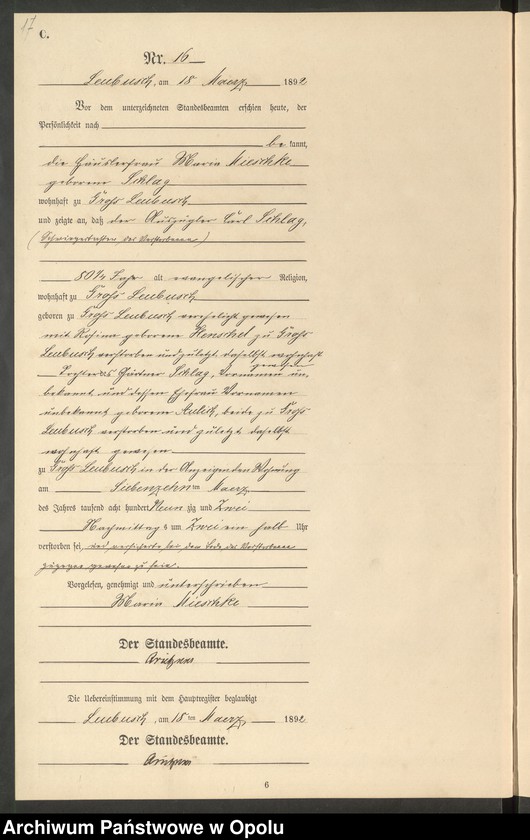 17
C.
Nr. 16
Leubusch, am 18 Maerz 1892
Vor dem unterzeichneten Standesbeamten erschien heute, der
Persönlichkeit nach
be kannt,
die Häuslerfrau Maria Mieschke
geborene Schlag
wohnhaft zu Groß Leubusch
und zeigte an, daß der Auszügler Carl Schlag,
80 3/4 Jahr alt evangelischer Religion,
wohnhaft zu Groß Leubusch
geboren zu Groß Leubusch verehelicht gewesen
mit Rosina geborene Henschel zu Groß
Leubusch verstorben und zuletzt daselbst wohnhaft
gewesen
Gärtner Schlag, Vornamen un-
bekannt und dessen Ehefrau Vornamen
unbekannt geborene Aulich, beide zu Groß
Leubusch verstorben und zuletzt daselbst
wohnhaft gewesen
zu Groß Leubusch in der Anzeigenden Wohnung
am Siebenzehnten Maerz
des Jahres tausend acht hundert Neun zig und Zwei
Nachmittag s um Zwei ein halb Uhr
verstorben sei, und der Verstorbene
zugegen gewesen zu sein.
Vorgelesen, genehmigt und unterschrieben
Maria Mieschke
Der Standesbeamte.
Die Uebereinstimmung mit dem Hauptregister beglaubigt
Leubusch, am 18 ten Maerz 1892
Der Standesbeamte.
6
Archiwum Państwowe w Opolu